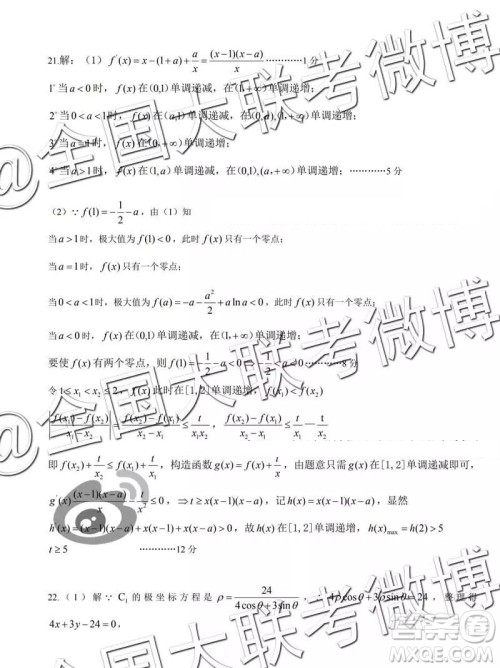 21.解：（1） f′(x)=x-(1+a)+a/x=(x-1)(x-a)/x …………1分
1°当a<0时，f(x)在(0,1)单调递减，在(1,+∞)单调递增；
当0<a<1时，f(x)在(a,1)单调递减，在(0,a),(1,+∞)单调递增；
当a=1时，f(x)在(0,+∞)单调递增；
4°当a>1时，f(x)在(1,a)单调递减，在(0,1),(a,+∞)单调递增；…………5分
（2）∵f(1)=-1/2-a，由（1）知
当a>1时，极大值为f(1)<0，此时f(x)只有一个零点；
当a=1时，f(x)只有一个零点；
当0<a<1时，极大值为f(a)=-a-a²/2+a ln a<0，此时f(x)只有一个零点；
当a<0时，f(x)在(0,1)单调递减，在(1,+∞)单调递增；
要使f(x)有两个零点，则f(1)=-1/2-a<0⇒-1/2<a<0…………8分
令1≤x₁<x₂≤2，f(x)此时在[1,2]单调递增，f(x₁)<f(x₂)
即f(x₂)+t/x₂≤f(x₁)+t/x₁，构造函数g(x)=f(x)+t/x，由题意只需g(x)在[1,2]单调递减即可，
⇒t≥x(x-1)(x-a)，记h(x)=x(x-1)(x-a)，显然
h′(x)=(x-1)(x-a)+x(x-1)+x(x-a)>0，故h(x)在[1,2]单调递增，h(x)max=h(2)>5
t≥5 …………12分
22.（1）解∵C₁的极坐标方程是ρ=24/(4cosθ+3sinθ)，∴4ρcosθ+3ρsinθ=24，整理得
4x+3y-24=0，
@全国大联考微博
@全国大联考微博